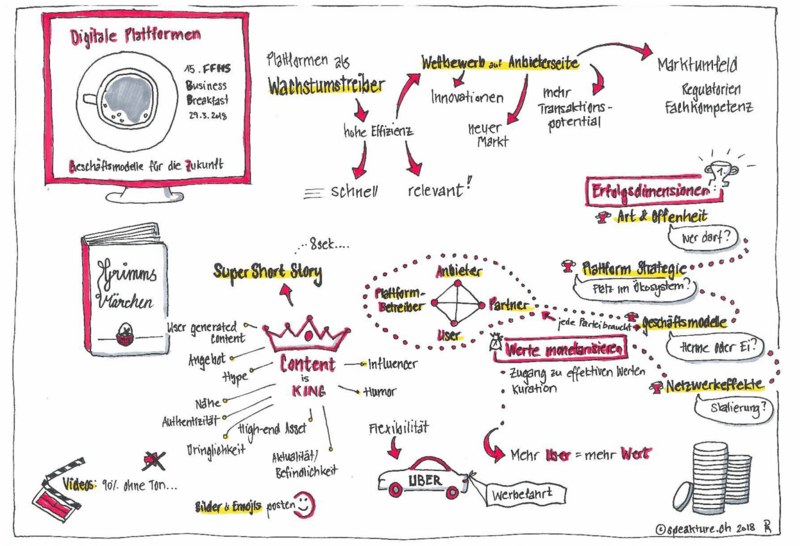 Digitale Plattformen
15. FFHS
Business
Breakfast
29.3.2018
Geschäftsmodelle für die Zukunft
Plattformen als
Wachstumstreiber
hohe Effizienz
schnell
relevant!
Wettbewerb auf Anbieterseite
Innovationen
neuer
Markt
mehr
Transaktions-
potential
Marktumfeld
Regulatorien
Fachkompetenz
1.
Erfolgsdimensionen:
Art & Offenheit
Wer darf?
Plattform Strategie
Platz im Ökosystem?
Geschäftsmodelle
Henne oder Ei?
Netzwerkeffekte
Skalierung?
Grimms
Märchen
...8sek....
Super Short Story
User generated
content
Angebot
Hype
Nähe
Authentizität
Dringlichkeit
High-end Asset
Aktualität/
Befindlichkeit
Humor
Influencer
Content
is
KING
Anbieter
Plattform-
Betreiber
Partner
User
jede Partei braucht
Werte monetarisieren
Zugang zu effektiven Werten
Kuration
Mehr User = mehr Wert
Flexibilität
UBER
Werbefahrt
Videos: 90% ohne Ton...
Bilder & Emojis posten
©speakture.ch 2018